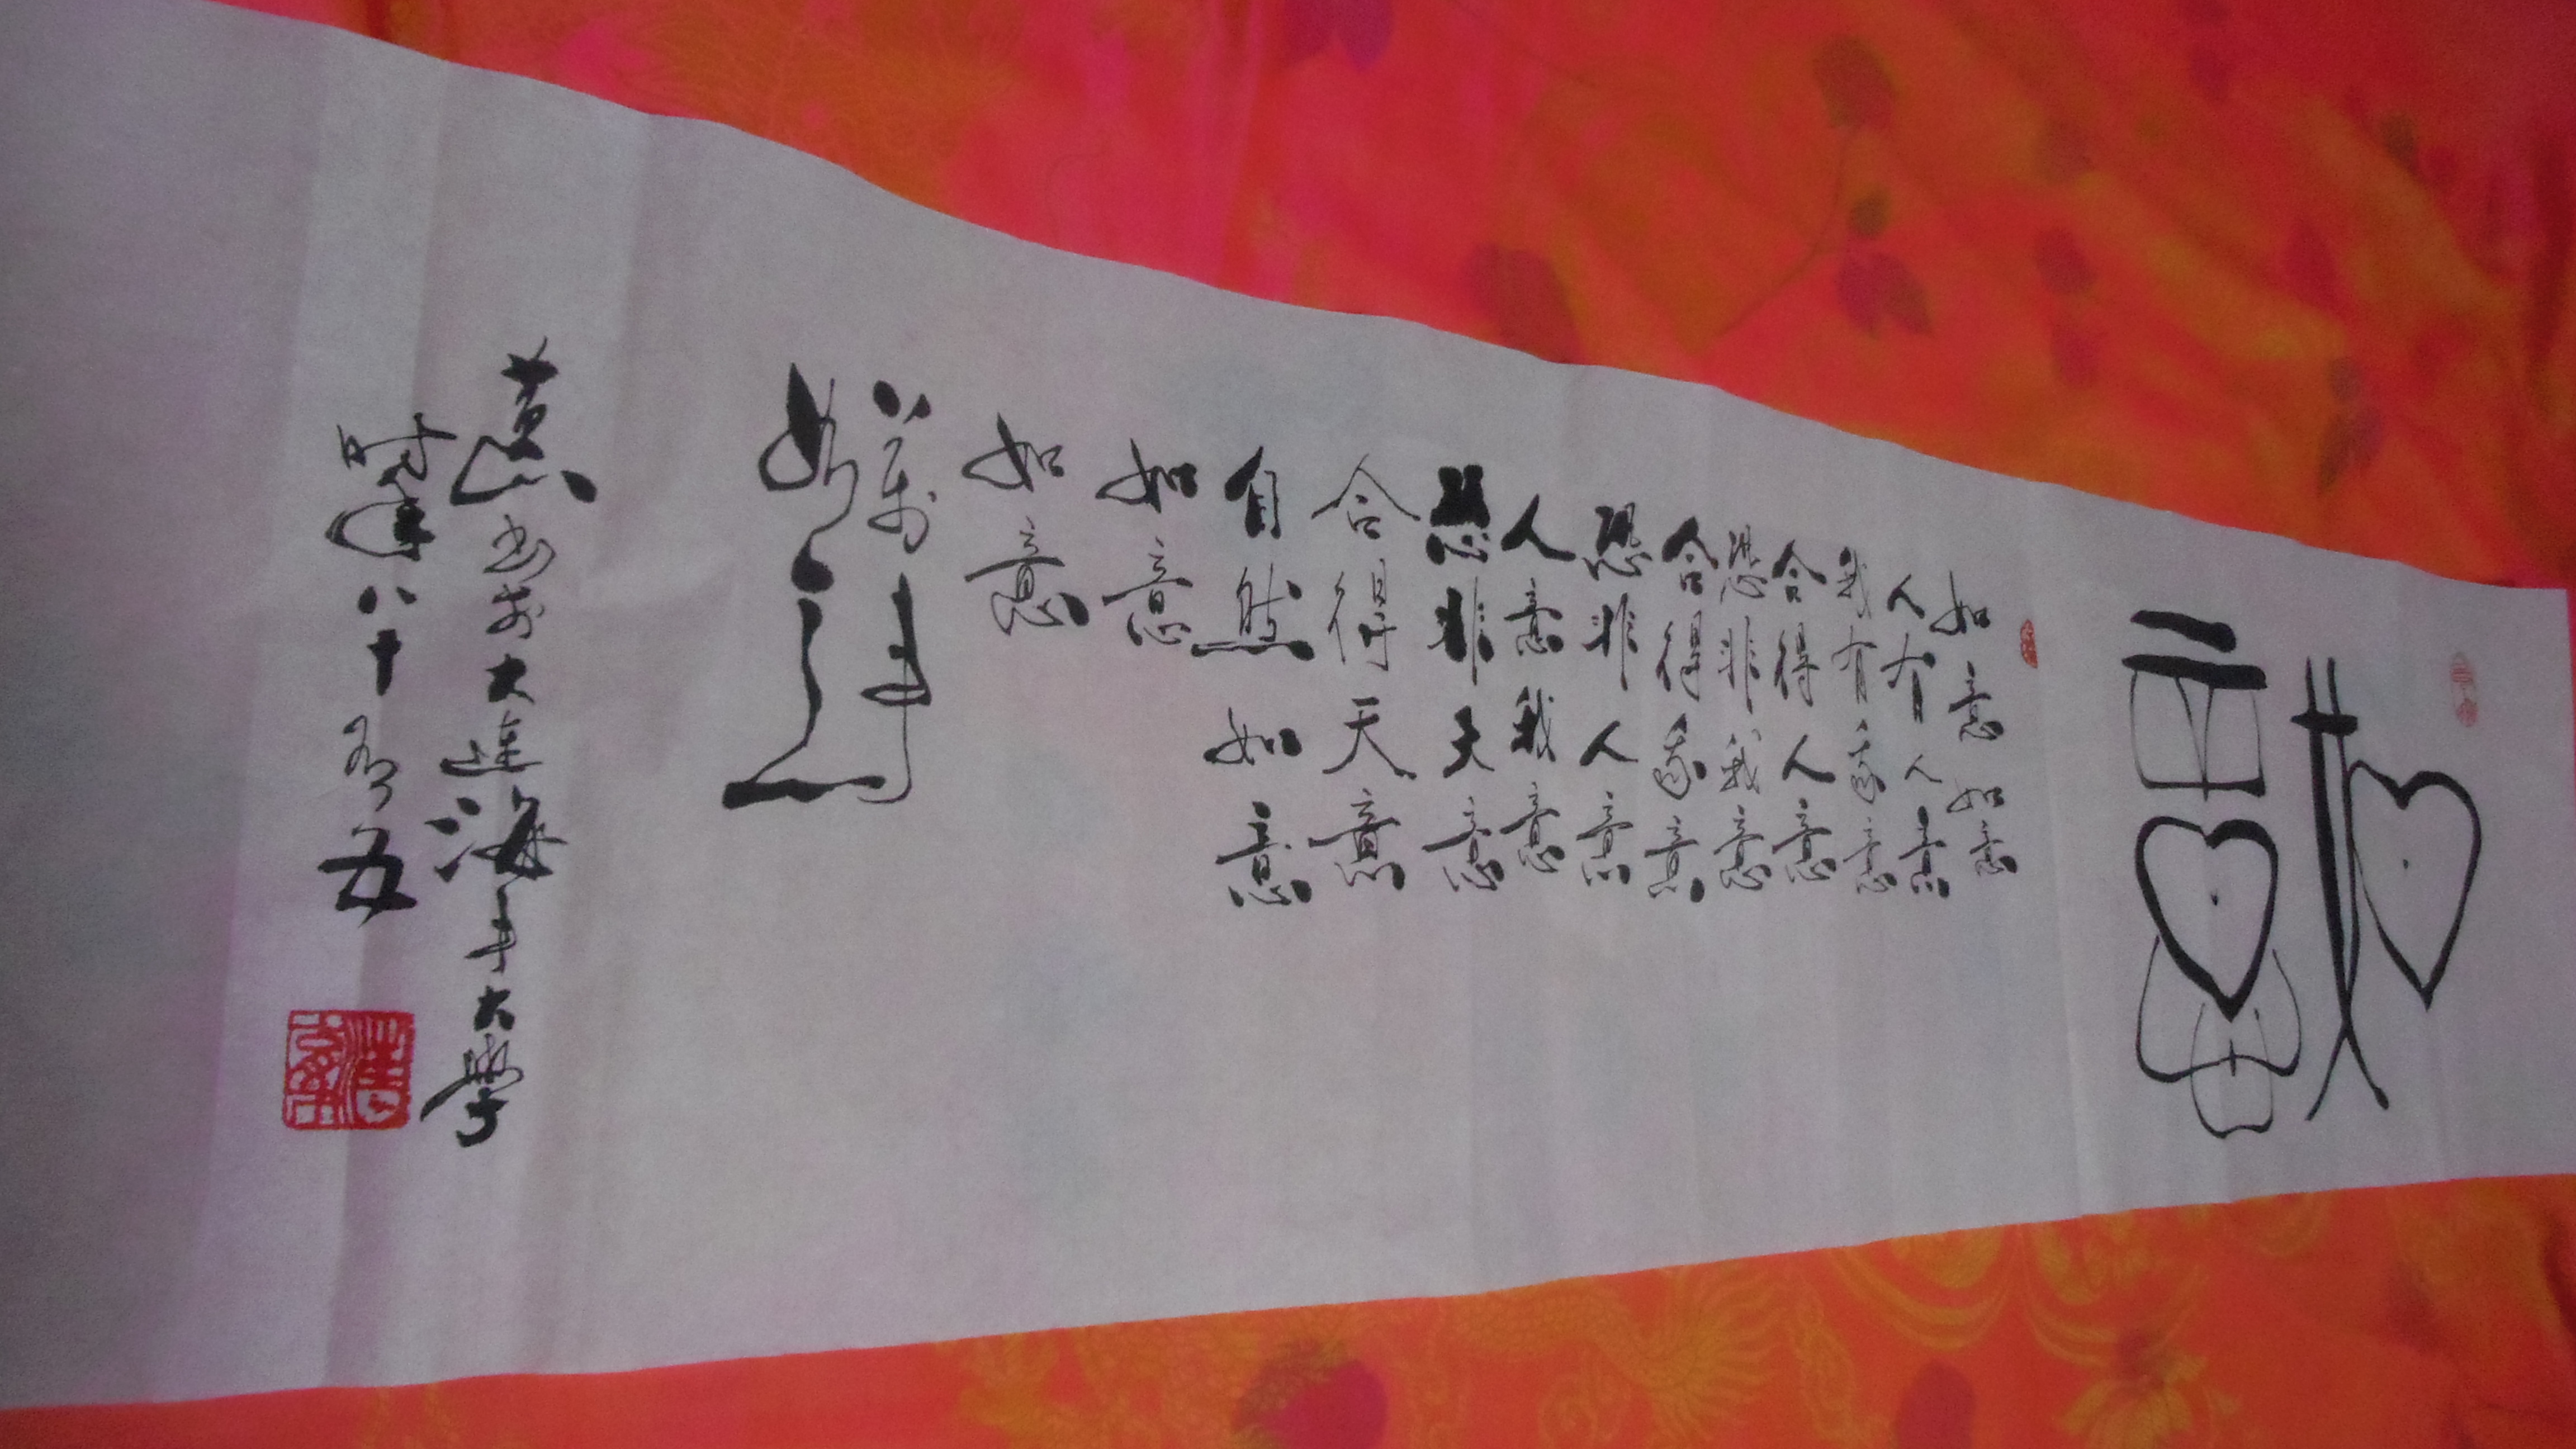 如意如意
人有人意
我有我意
合得人意
恐非我意
合得我意
恐非人意
人意我意
恐非天意
合得天意
自然如意
如意
如意
萬事
如意
书於大連海事大學
时年八十有五